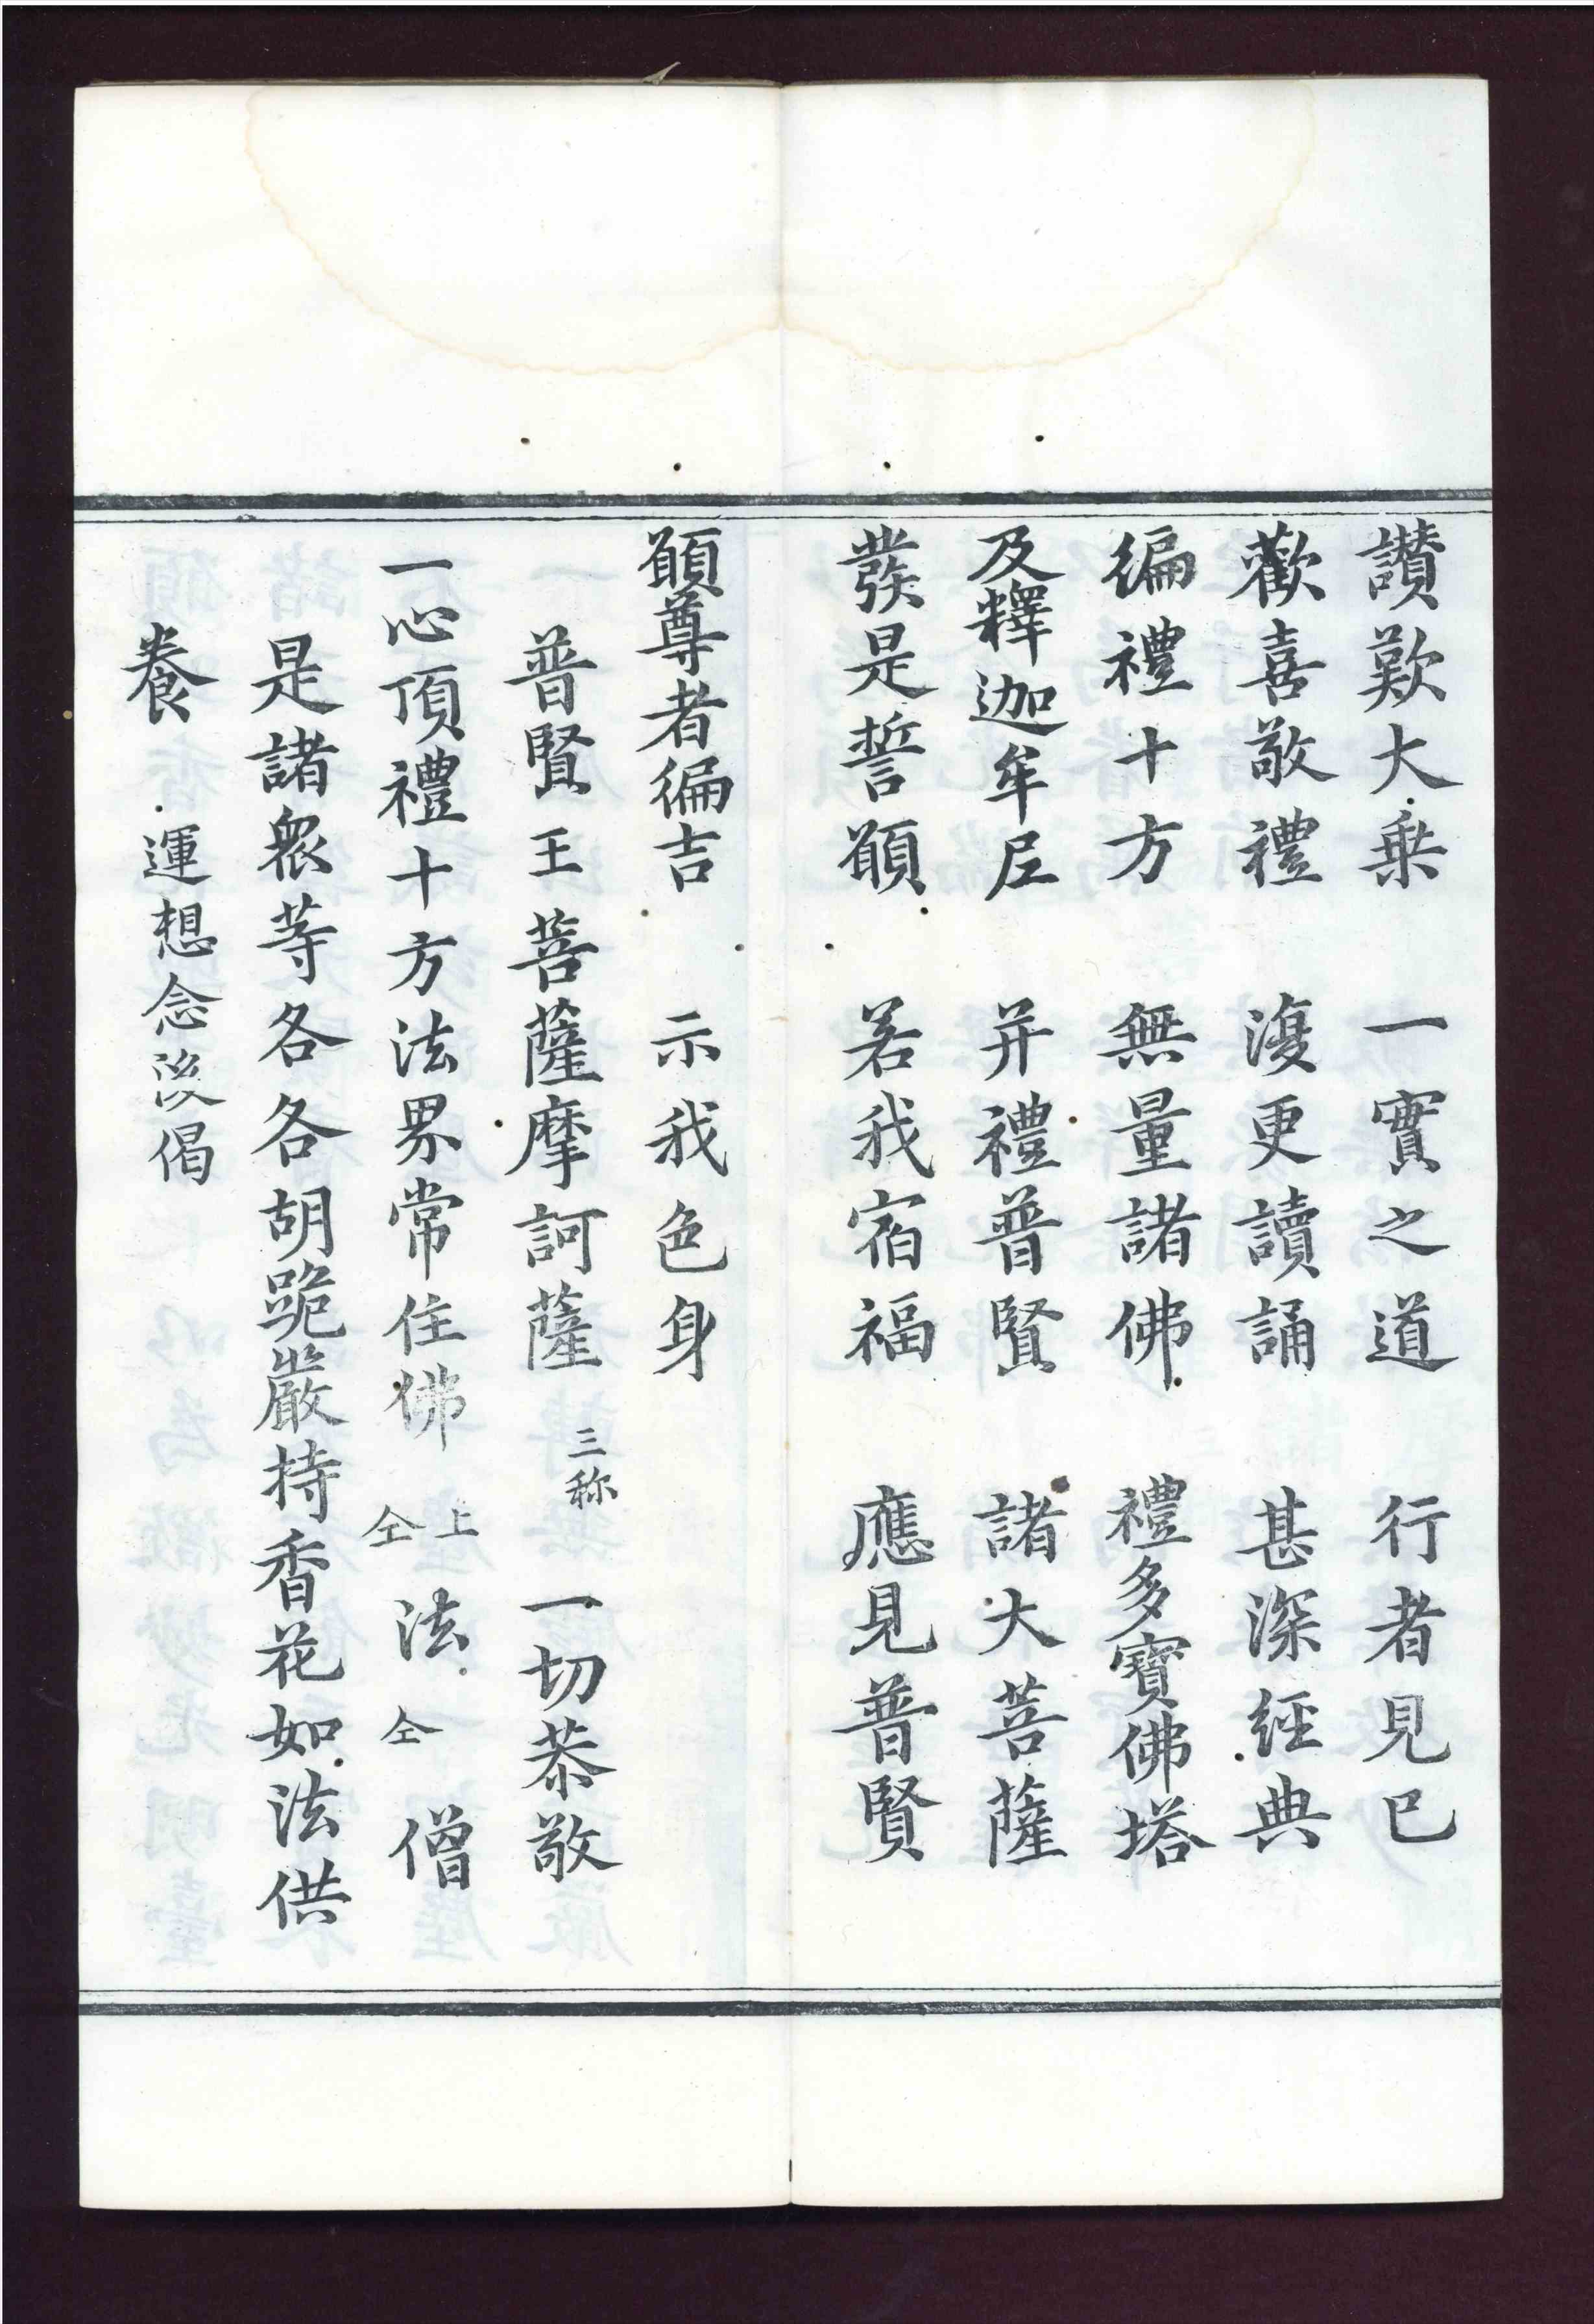 讃歎大乗　一實之道　行者見已
歡喜敬禮　復更讀誦　甚深經典
徧禮十方　無量諸佛　禮多寶佛塔
及釋迦牟尼　并禮普賢　諸大菩薩
發是誓願　若我宿福　應見普賢
願尊者徧吉　示我色身
普賢王菩薩摩訶薩 三称 一切恭敬
一心頂禮十方法界常住佛 上仝 法 仝 僧
是諸衆等各各胡跪嚴持香花如法供
養 運想念後偈